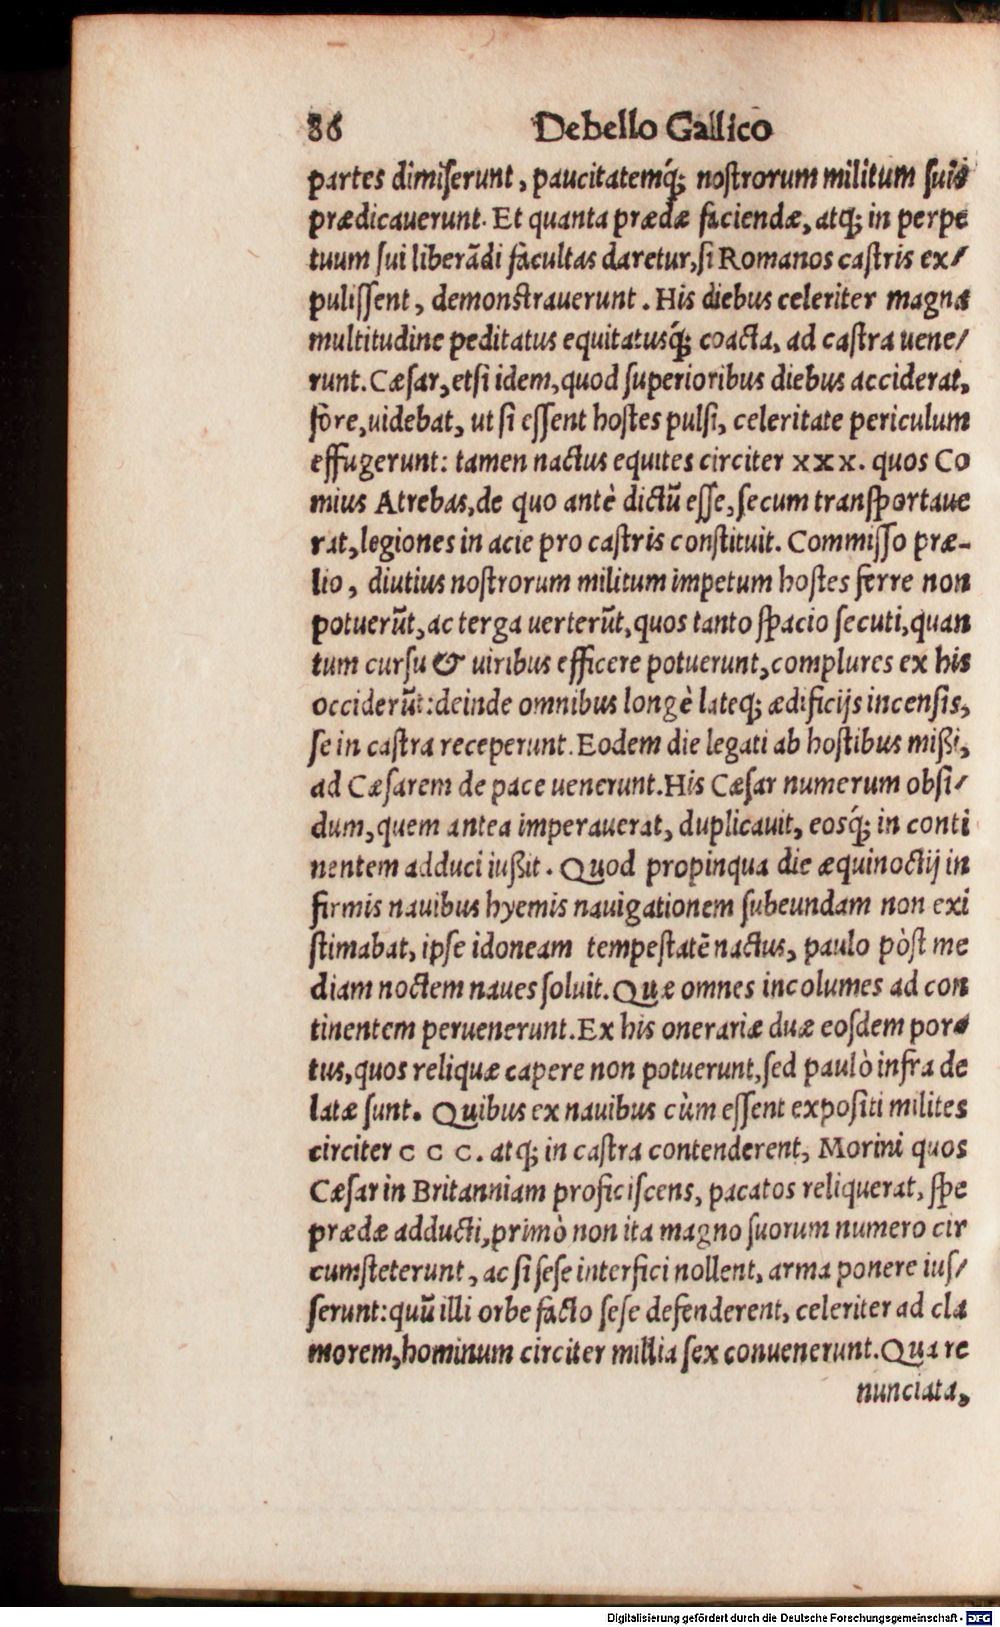 86 De bello Gallico
partes dimiſerunt, paucitatemq́; noſtrorum militum ſuis
prædicauerunt. Et quanta prædæ faciendæ, atq; in perpe
tuum ſui liberãdi facultas daretur, ſi Romanos caſtris ex/
puliſſent, demonſtrauerunt. His diebus celeriter magna
multitudine peditatus equitatusq́; coacta, ad caſtra uene/
runt. Cæſar, etſi idem, quod ſuperioribus diebus acciderat,
fore, uidebat, ut ſi eſſent hoſtes pulſi, celeritate periculum
effugerunt: tamen nactus equites circiter xxx. quos Co
mius Atrebas, de quo antè dictũ eſſe, ſecum tranſportaue
rat, legiones in acie pro caſtris conſtituit. Commiſſo præ-
lio, diutius noſtrorum militum impetum hoſtes ferre non
potuerũt, ac terga uerterũt, quos tanto ſpacio ſecuti, quan
tum curſu & uiribus efficere potuerunt, complures ex his
occiderũt: deinde omnibus longè lateq; ædificijs incenſis,
ſe in caſtra receperunt. Eodem die legati ab hoſtibus mißi,
ad Cæſarem de pace uenerunt. His Cæſar numerum obſi/
dum, quem antea imperauerat, duplicauit, eosq́; in conti
nentem adduci iußit. Quod propinqua die æquinoctij in
firmis nauibus hyemis nauigationem ſubeundam non exi
ſtimabat, ipſe idoneam tempeſtatẽ nactus, paulo pòſt me
diam noctem naues ſoluit. Quæ omnes incolumes ad con
tinentem peruenerunt. Ex his onerariæ duæ eoſdem por/
tus, quos reliquæ capere non potuerunt, ſed paulò infra de
latæ ſunt. Quibus ex nauibus cùm eſſent expoſiti milites
circiter c c c. atq; in caſtra contenderent, Morini quos
Cæſar in Britanniam proficiſcens, pacatos reliquerat, ſpe
prædæ adducti, primò non ita magno ſuorum numero cir
cumſteterunt, ac ſi ſeſe interfici nollent, arma ponere iuſ/
ſerunt: quũ illi orbe facto ſeſe defenderent, celeriter ad cla
morem, hominum circiter millia ſex conuenerunt. Qua re
nunciata,
Digitalisierung gefördert durch die Deutsche Forschungsgemeinschaft - DFG